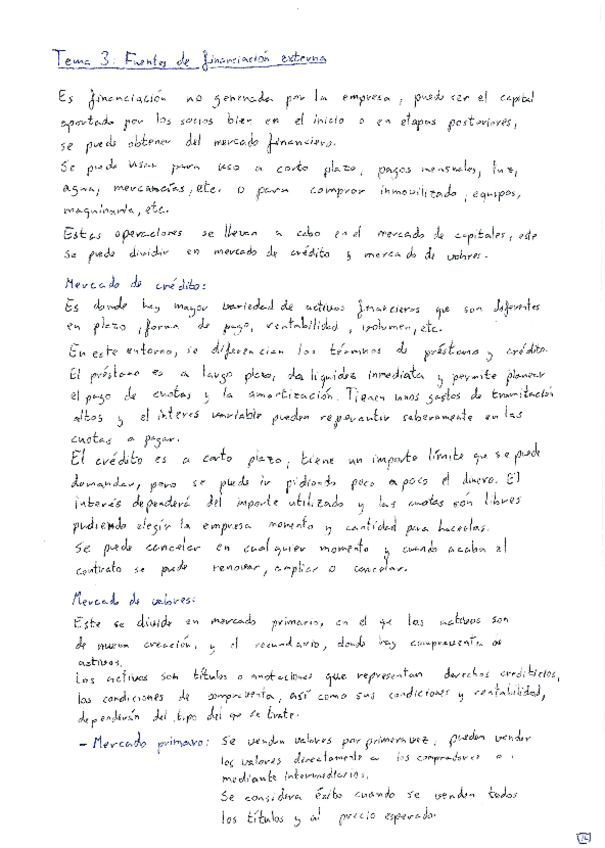 Tema 3: Fuentes de financiación externa
Es financiación no generada por la empresa, puede ser el capital
aportado por los socios bien en el inicio o en etapas posteriores,
se puede obtener del mercado financiero.
Se puede usar para uso a corto plazo, pagos mensuales, luz,
agua, mercancías, etc. o para comprar inmovilizado, equipos,
maquinaria, etc.
Estas operaciones se llevan a cabo en el mercado de capitales, este
se puede dividir en mercado de crédito y mercado de valores.
Mercado de crédito:
Es donde hay mayor variedad de activos financieros que son diferentes
en plazo, forma de pago, rentabilidad, volumen, etc.
En este entorno, se diferencian los términos de préstamo y crédito.
El préstamo es a largo plazo, da liquidez inmediata y permite planear
el pago de cuotas y la amortización. Tienen unos gastos de tramitación
altos y el interés variable pueden repercutir severamente en las
cuotas a pagar.
El crédito es a corto plazo, tiene un importe límite que se puede
demandar, pero se puede ir pidiendo poco a poco el dinero. El
interés dependerá del importe utilizado y las cuotas son libres
pudiendo elegir la empresa momento y cantidad para hacerlas.
Se puede cancelar en cualquier momento y cuando acaba el
contrato se puede renovar, ampliar o cancelar.
Mercado de valores:
Este se divide en mercado primario, en el que los activos son
de nueva creación, y el secundario, donde hay compraventa de
activos.
Los activos son títulos o anotaciones que representan derechos crediticios,
las condiciones de compraventa, así como sus condiciones y rentabilidad,
dependerán del tipo del que se trate.
- Mercado primario: Se venden valores por primera vez, pueden vender
los valores directamente a los compradores o
mediante intermediarios.
Se considera éxito cuando se venden todos
los títulos y al precio esperado.